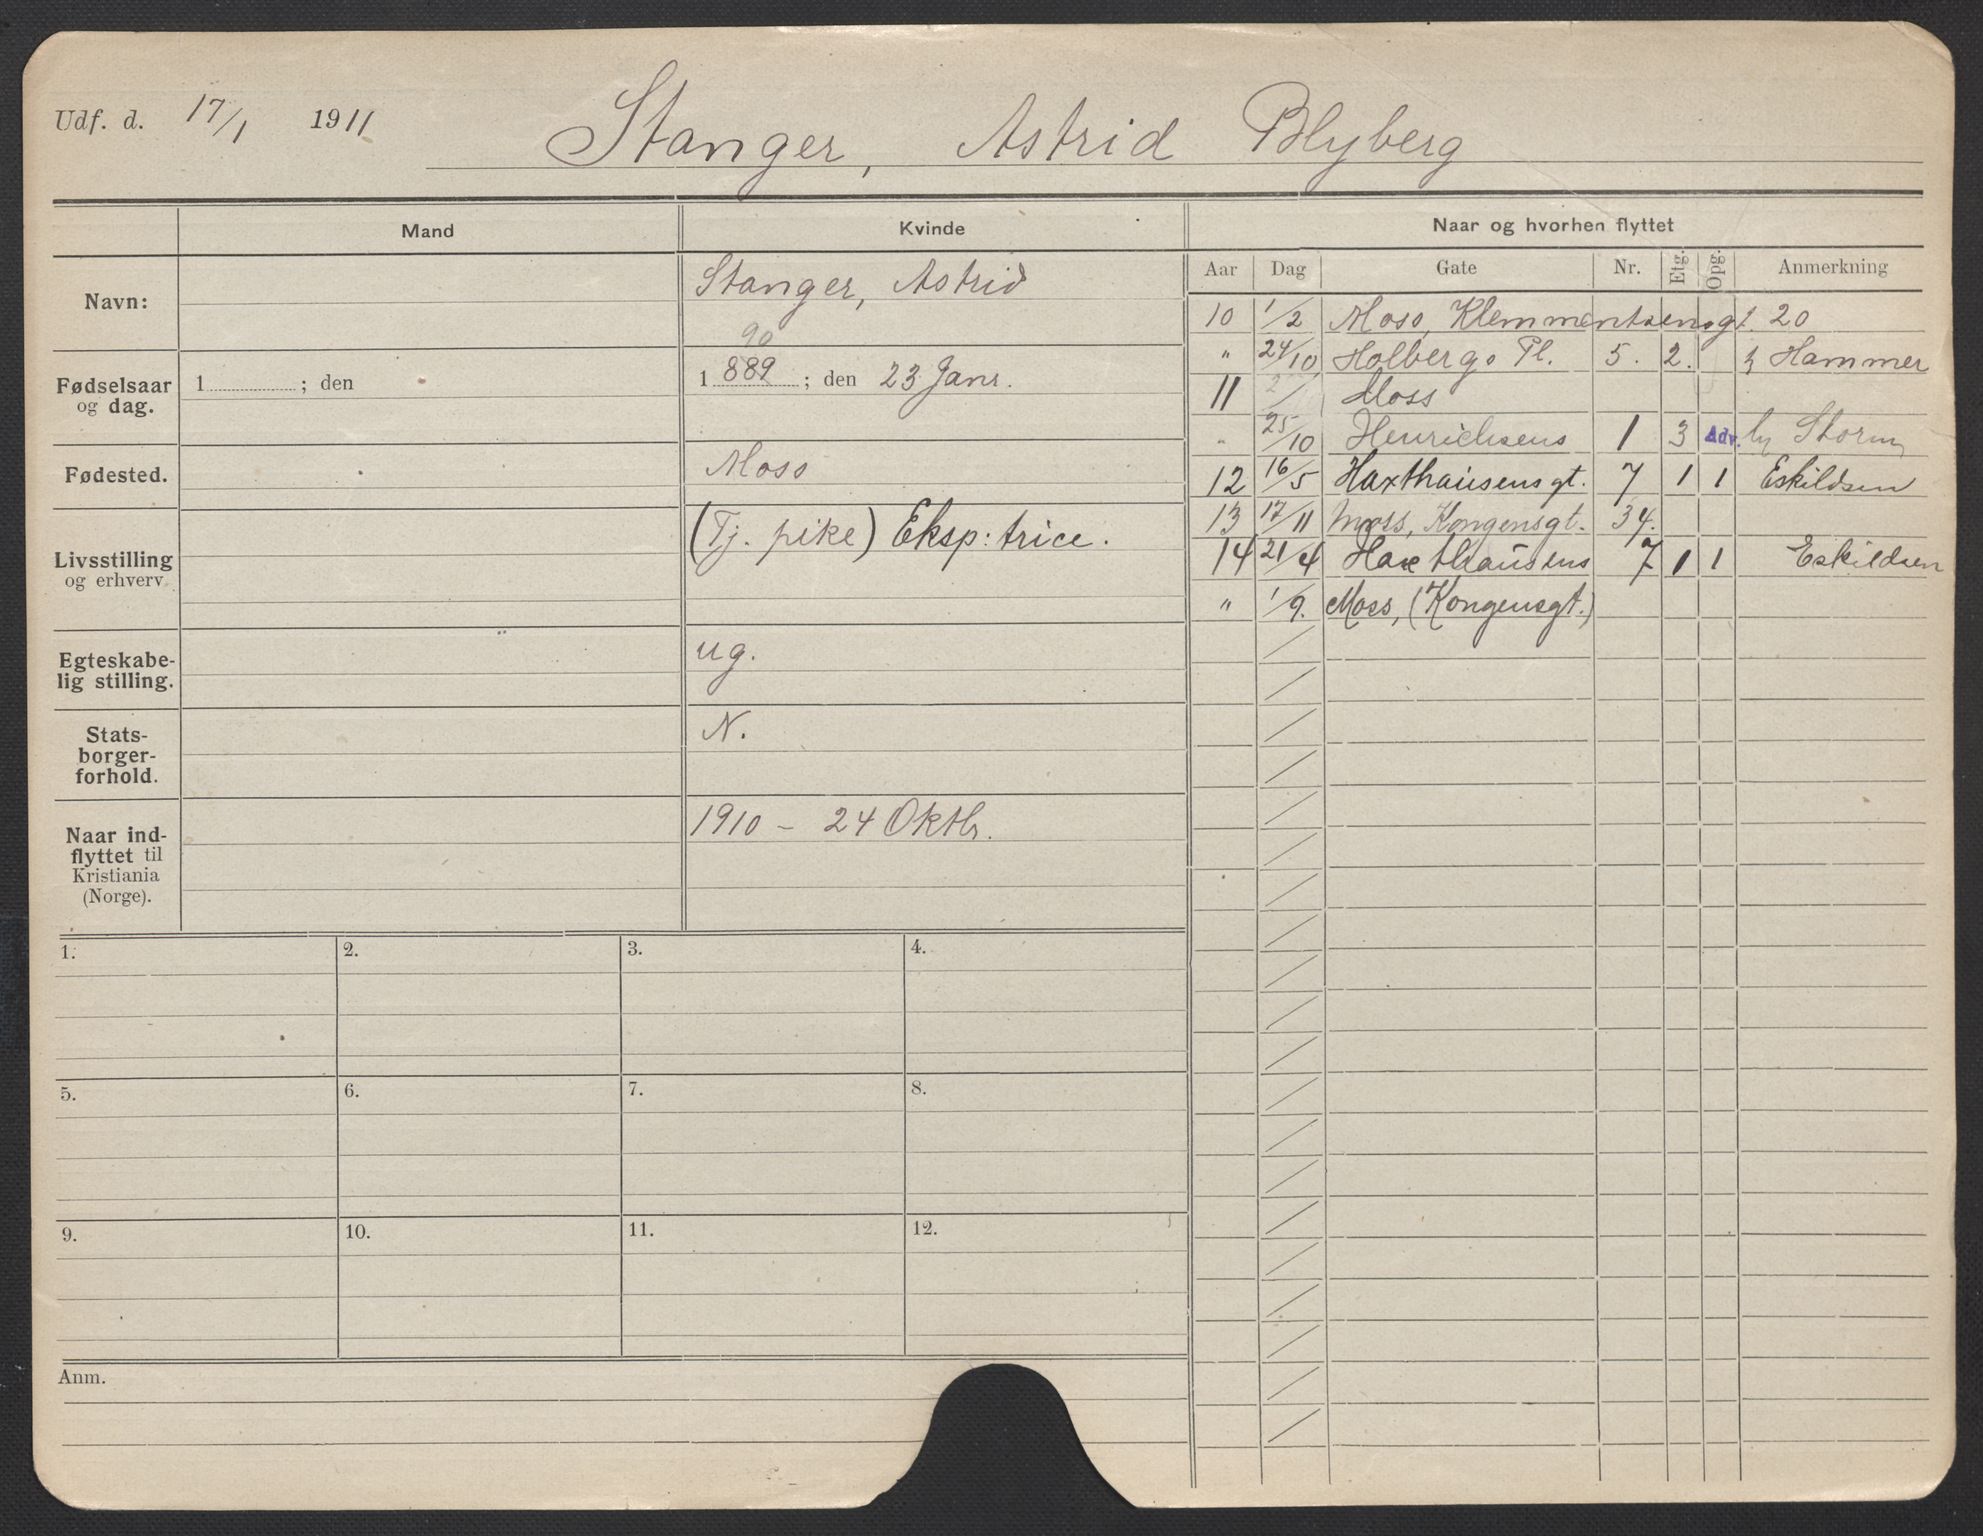 Udf. d. 17/1 1911 Stanger, Astrid Blyberg
Mand Kvinde Naar og hvorhen flyttet
Navn: Stanger, Astrid
90
Fødselsaar og dag. 1 ; den 1 889 ; den 23 Janr.
Fødested. Moss
Livsstilling og erhverv (Tj. pike) Eksp:trice.
Egteskabe-
lig stilling. ug.
Stats-
borger-
forhold. N.
Naar ind-
flyttet til
Kristiania
(Norge). 1910 – 24 Oktbr.
Aar Dag Gate Nr. Etg. Opg. Anmerkning
10 1/2 Moss, Klemmentsensgt. 20
" 24/10 Holbergs Pl. 5. 2. Hammer
11 Moss
" 25/10 Henrichsens 1 3 Adv. Storm
12 16/5 Haxthausensgt. 7 1 1 Eskildsen
13 17/11 Moss, Kongensgt. 34.
14 21/4 Haxthausens 7 1 1 Eskildsen
" 1/9. Moss, (Kongensgt.)
1. 2. 3. 4.
5. 6. 7. 8.
9. 10. 11. 12.
Anm.